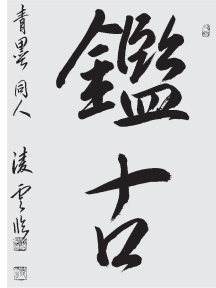 鑑古
青墨同人
凌雲临